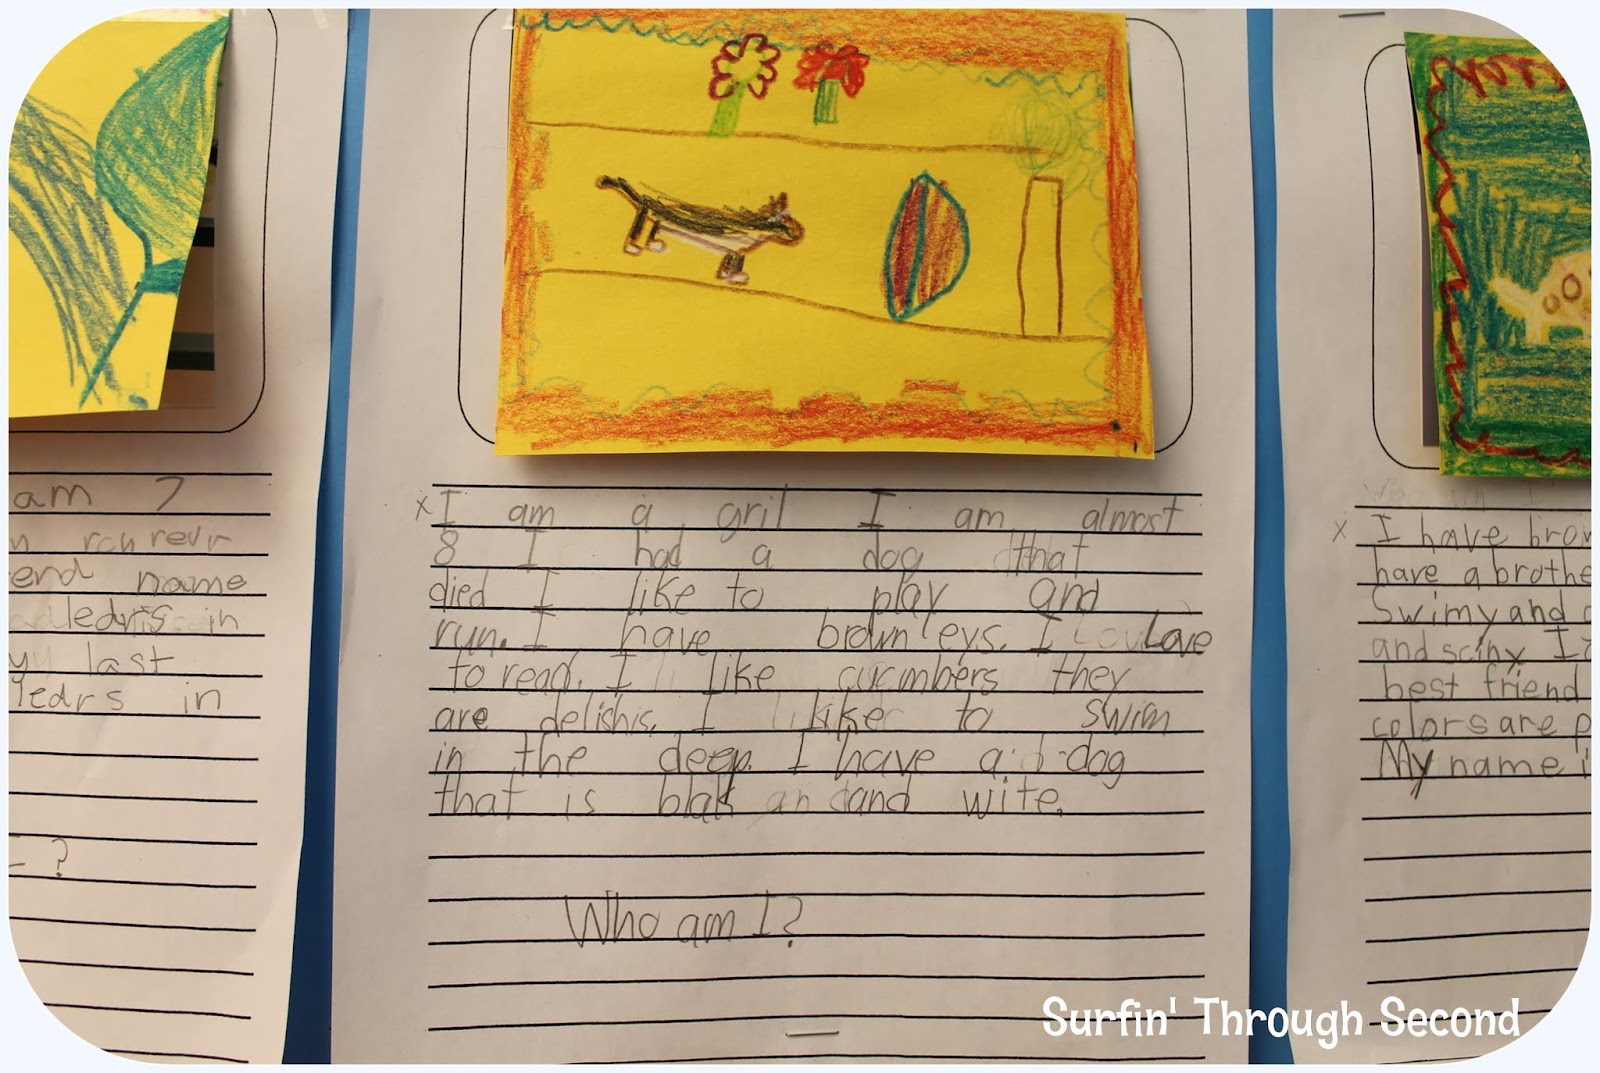 am ?
rcn revr
end name
ledris in
last
ledrs in
?
x I am a gril I am almost
8 I had a dog that
died I like to play and
run. I have brown eys. I Love
to read. I like cucmbers they
are delishis. I like to swim
in the deep. I have a dog
that is blak and wite.
Who am I?
x I have brow
have a brothe
Swimy and
and sciny I
best friend
colors are p
My name i
Surfin' Through Second